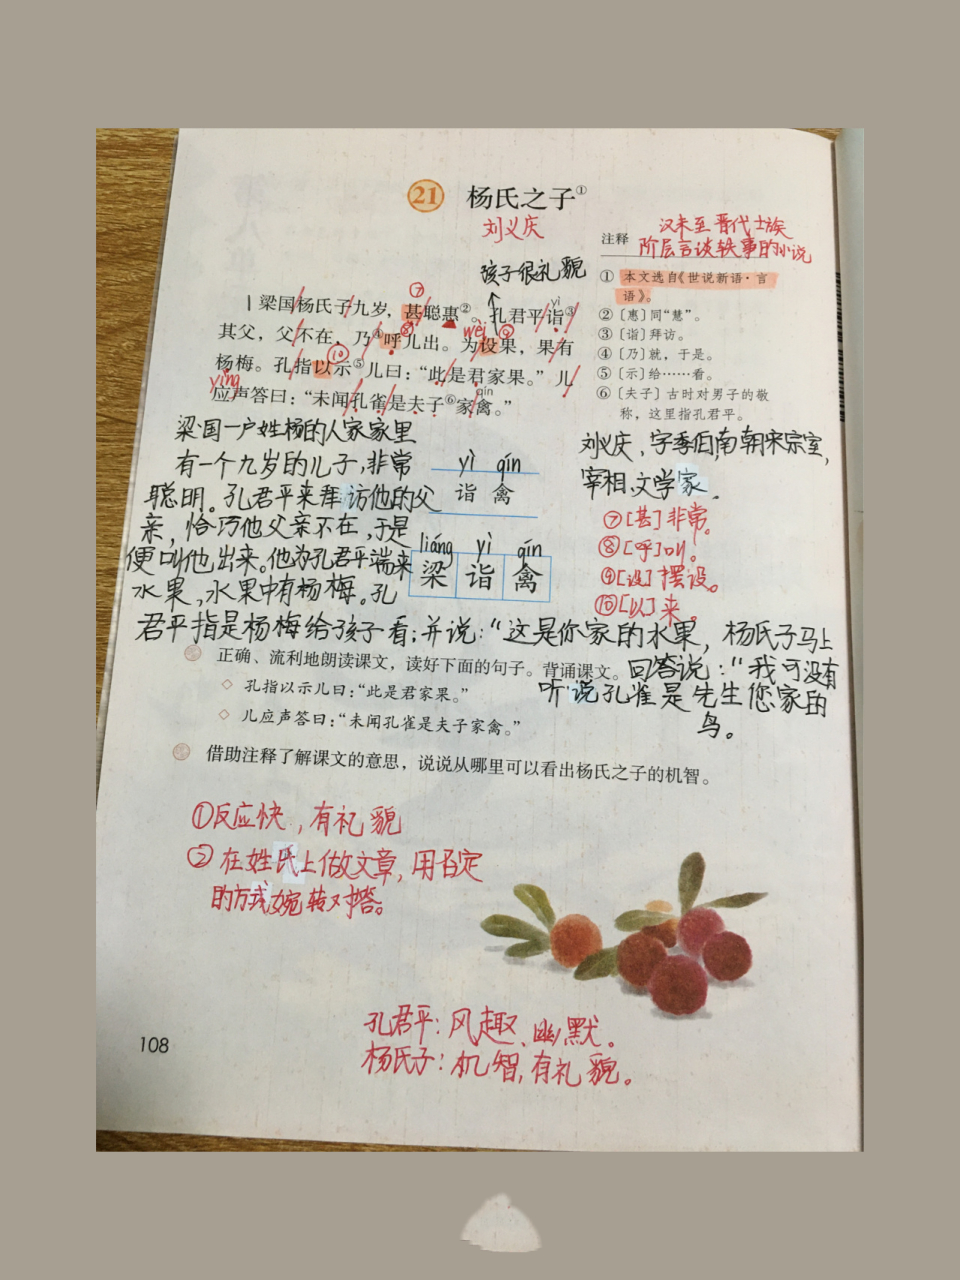 21 杨氏之子①
刘义庆
孩子很礼貌
梁国杨氏子九岁，甚聪惠②。孔君平诣③
⑦
yì
其父，父不在，乃④呼儿出。为设果，果有
⑧
wèi
⑨
杨梅。孔指以示⑤儿曰：“此是君家果。”儿
⑩
yìng
应声答曰：“未闻孔雀是夫子⑥家禽。”
qín
汉末至晋代士族
注释 阶层言谈轶事的小说
① 本文选自《世说新语·言
语》。
② 〔惠〕同“慧”。
③ 〔诣〕拜访。
④ 〔乃〕就，于是。
⑤ 〔示〕给……看。
⑥ 〔夫子〕古时对男子的敬
称，这里指孔君平。
梁国一户姓杨的人家家里
有一个九岁的儿子，非常
聪明。孔君平来拜访他的父
亲，恰巧他父亲不在，于是
便叫他出来。他为孔君平端来
水果，水果中有杨梅。孔
君平指是杨梅给孩子看；并说：“这是你家的水果，杨氏子马上
回答说：“我可没有
听说孔雀是先生您家的
鸟。
yì qín
诣 禽
liáng yì qín
梁 诣 禽
刘义庆，字季伯，南朝宋宗室，
宰相、文学家。
⑦［甚］非常。
⑧［呼］叫。
⑨［设］摆设。
⑩［以］来。
正确、流利地朗读课文，读好下面的句子。背诵课文。
孔指以示儿曰：“此是君家果。”
儿应声答曰：“未闻孔雀是夫子家禽。”
借助注释了解课文的意思，说说从哪里可以看出杨氏之子的机智。
①反应快，有礼貌
② 在姓氏上做文章，用否定
的方式婉转对答。
孔君平：风趣、幽默。
杨氏子：机智，有礼貌。
108